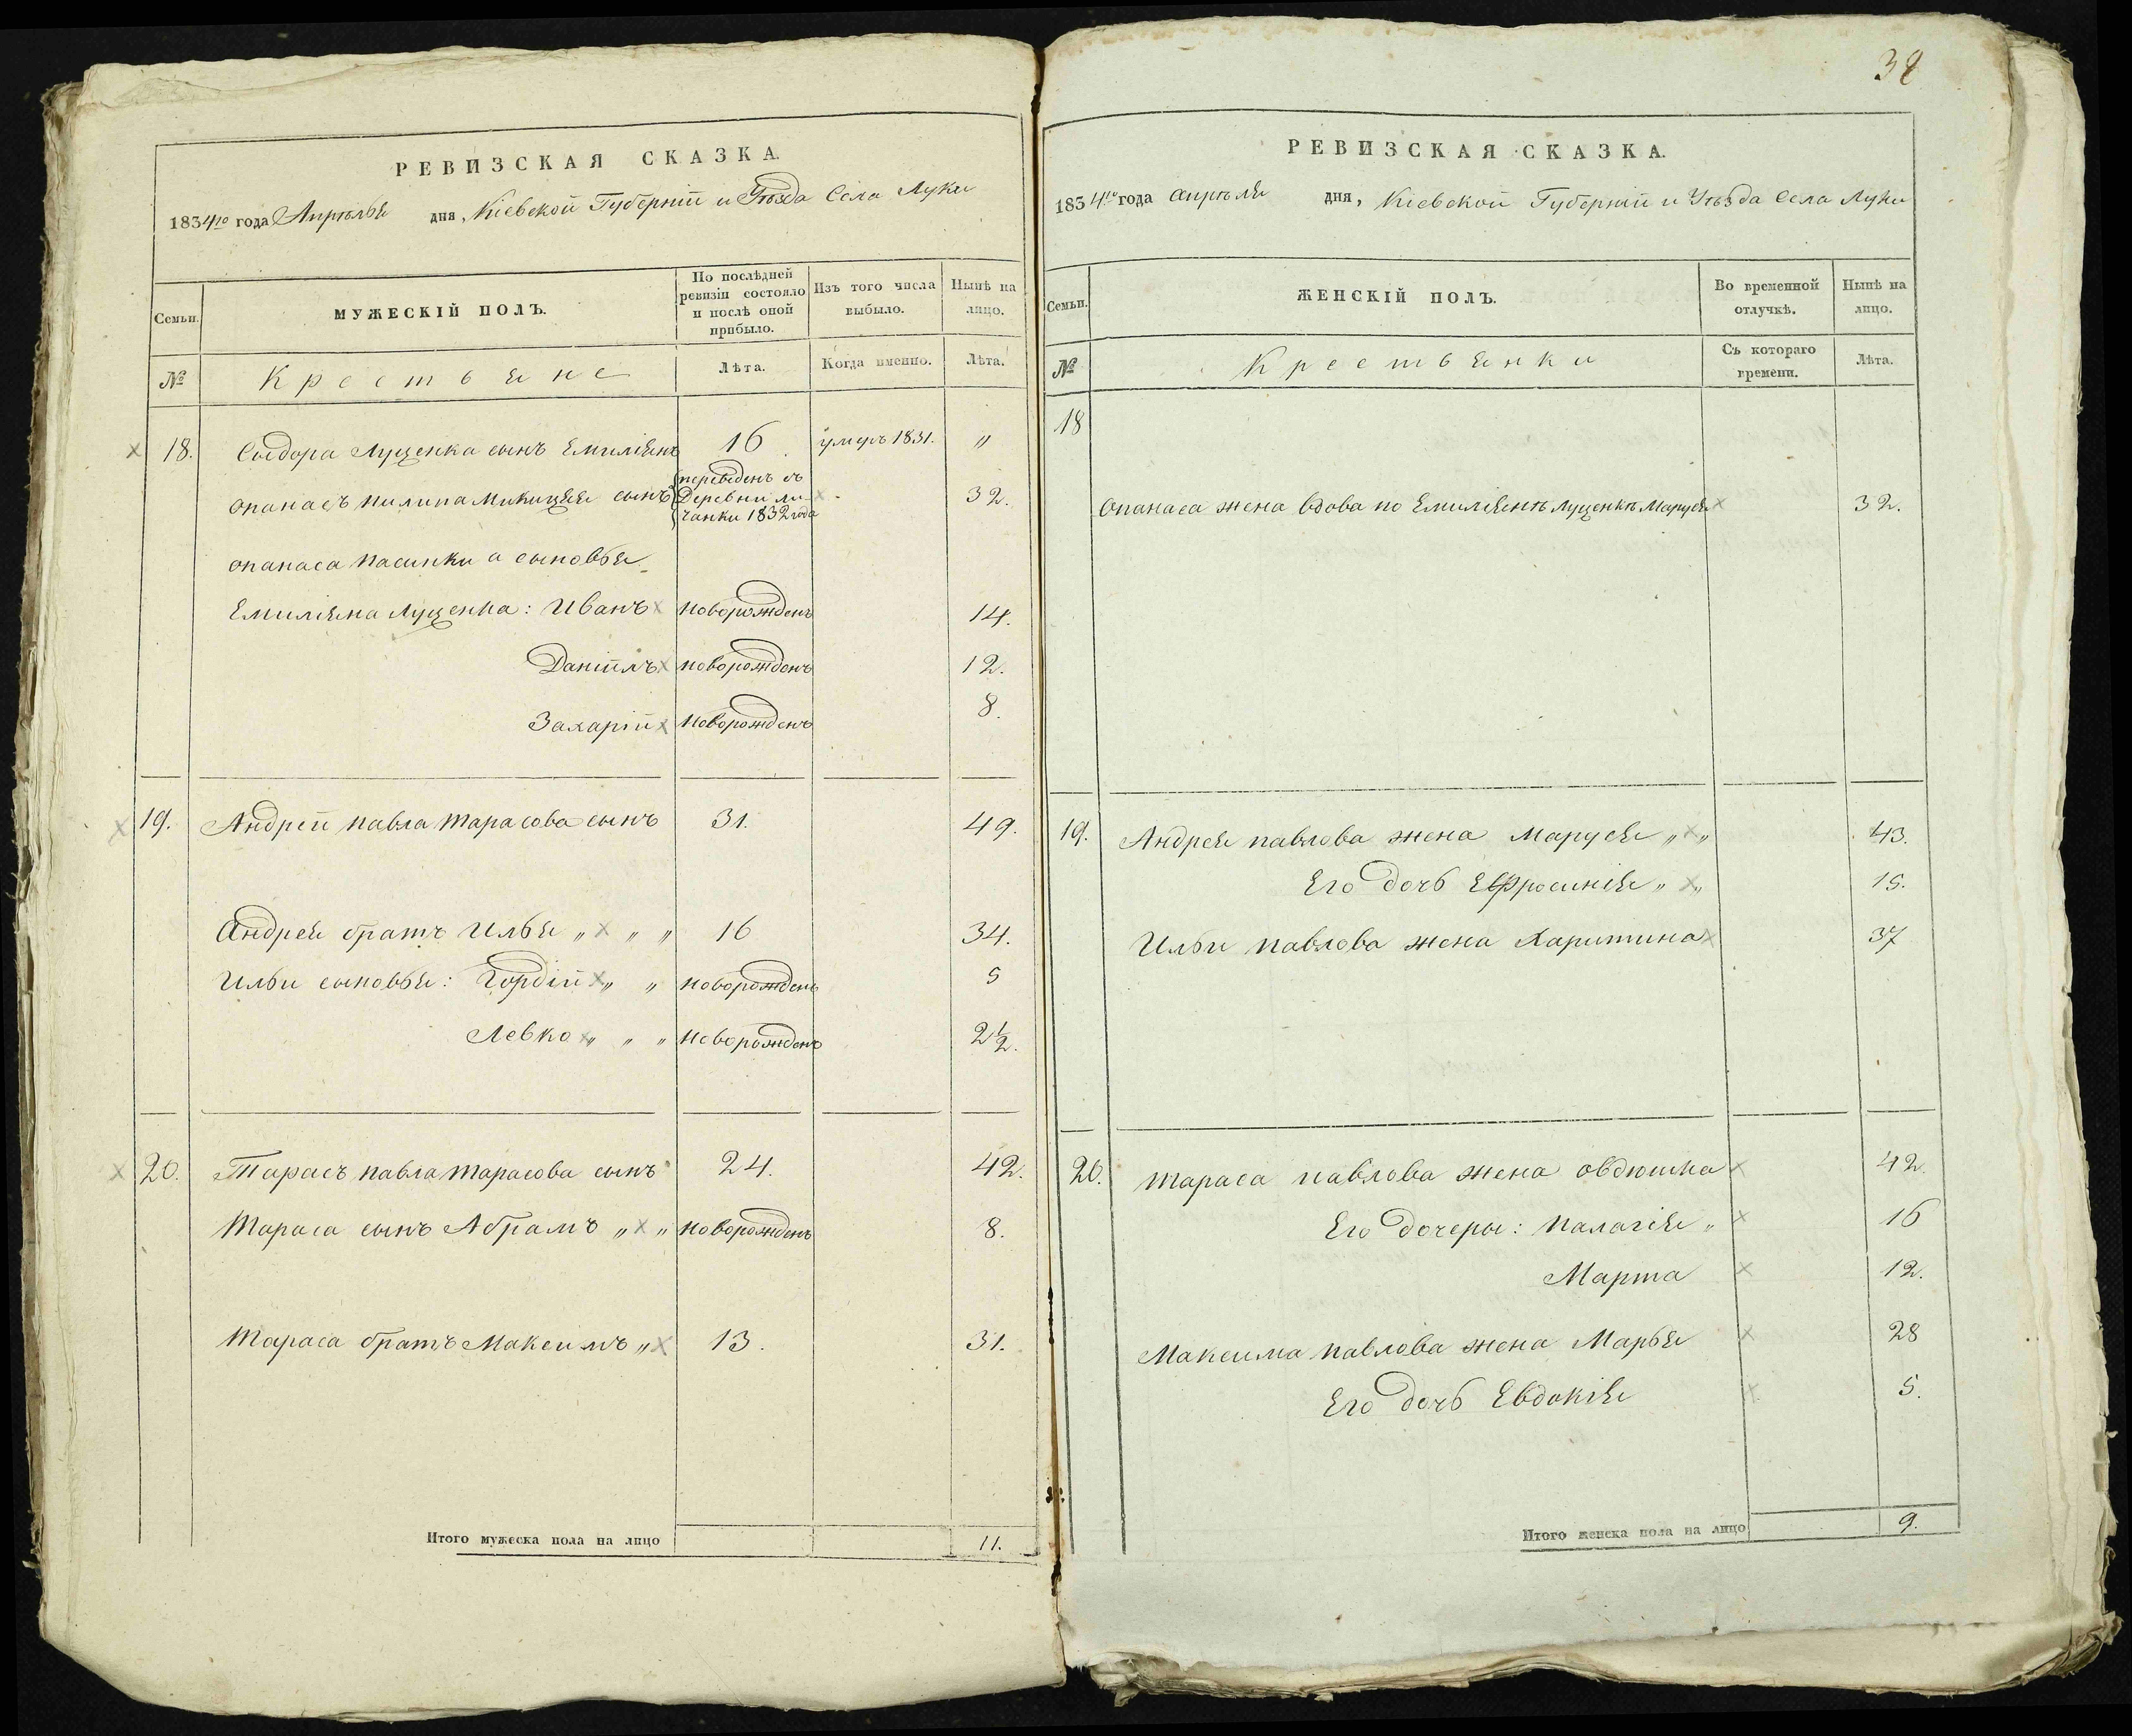 РЕВИЗСКАЯ СКАЗКА.
1834го года Апрѣлья дня, Кіевской Губерніи и Уѣзда Села Луки
Семьи.
МУЖЕСКІЙ ПОЛЪ.
По послѣдней ревизіи состояло и послѣ оной прибыло.
Изъ того числа выбыло.
Нынѣ на лицо.
№
Крестьяне
Лѣта.
Когда именно.
Лѣта.
18. Сыдора Луценка сынъ Емиліянъ 16 умеръ 1831. „
Опанасъ Пилипа Микицея сынъ переведенъ съ Деревни Личанки 1832 года 32.
Опанаса пасинки а сыновья
Емиліяна Луценка: Иванъ новорожденъ 14.
Даніилъ новорожденъ 12.
Захарій новорожденъ 8.
19. Андрей Павла Тарасова сынъ 31. 49.
Андрея братъ Илья „ „ „ 16 34.
Ильи сыновья: Гордій „ „ новорожденъ 5
Левко „ „ „ новорожденъ 2½.
20. Тарасъ Павла Тарасова сынъ 24. 42.
Тараса сынъ Абрамъ „ „ новорожденъ 8.
Тараса братъ Максимъ „ 13. 31.
Итого мужеска пола на лицо 11.
38
РЕВИЗСКАЯ СКАЗКА.
1834го года Апрѣля дня, Кіевской Губерніи и Уѣзда Села Луки
Семьи.
ЖЕНСКІЙ ПОЛЪ.
Во временной отлучкѣ.
Нынѣ на лицо.
№
Крестьянки
Съ котораго времени.
Лѣта.
18
Опанаса жена вдова по Емиліянѣ Луценкѣ Маруся 32.
19. Андрея Павлова жена Маруся „ „ 43.
Его дочь Ефросинія „ „ 15.
Ильи Павлова жена Харитина 37
20. Тараса Павлова жена Овдюшка 42.
Его дочеры: Палагія „ 16
Марта 12.
Максима Павлова жена Марья 28
Его дочь Евдокія 5.
Итого женска пола на лицо 9.